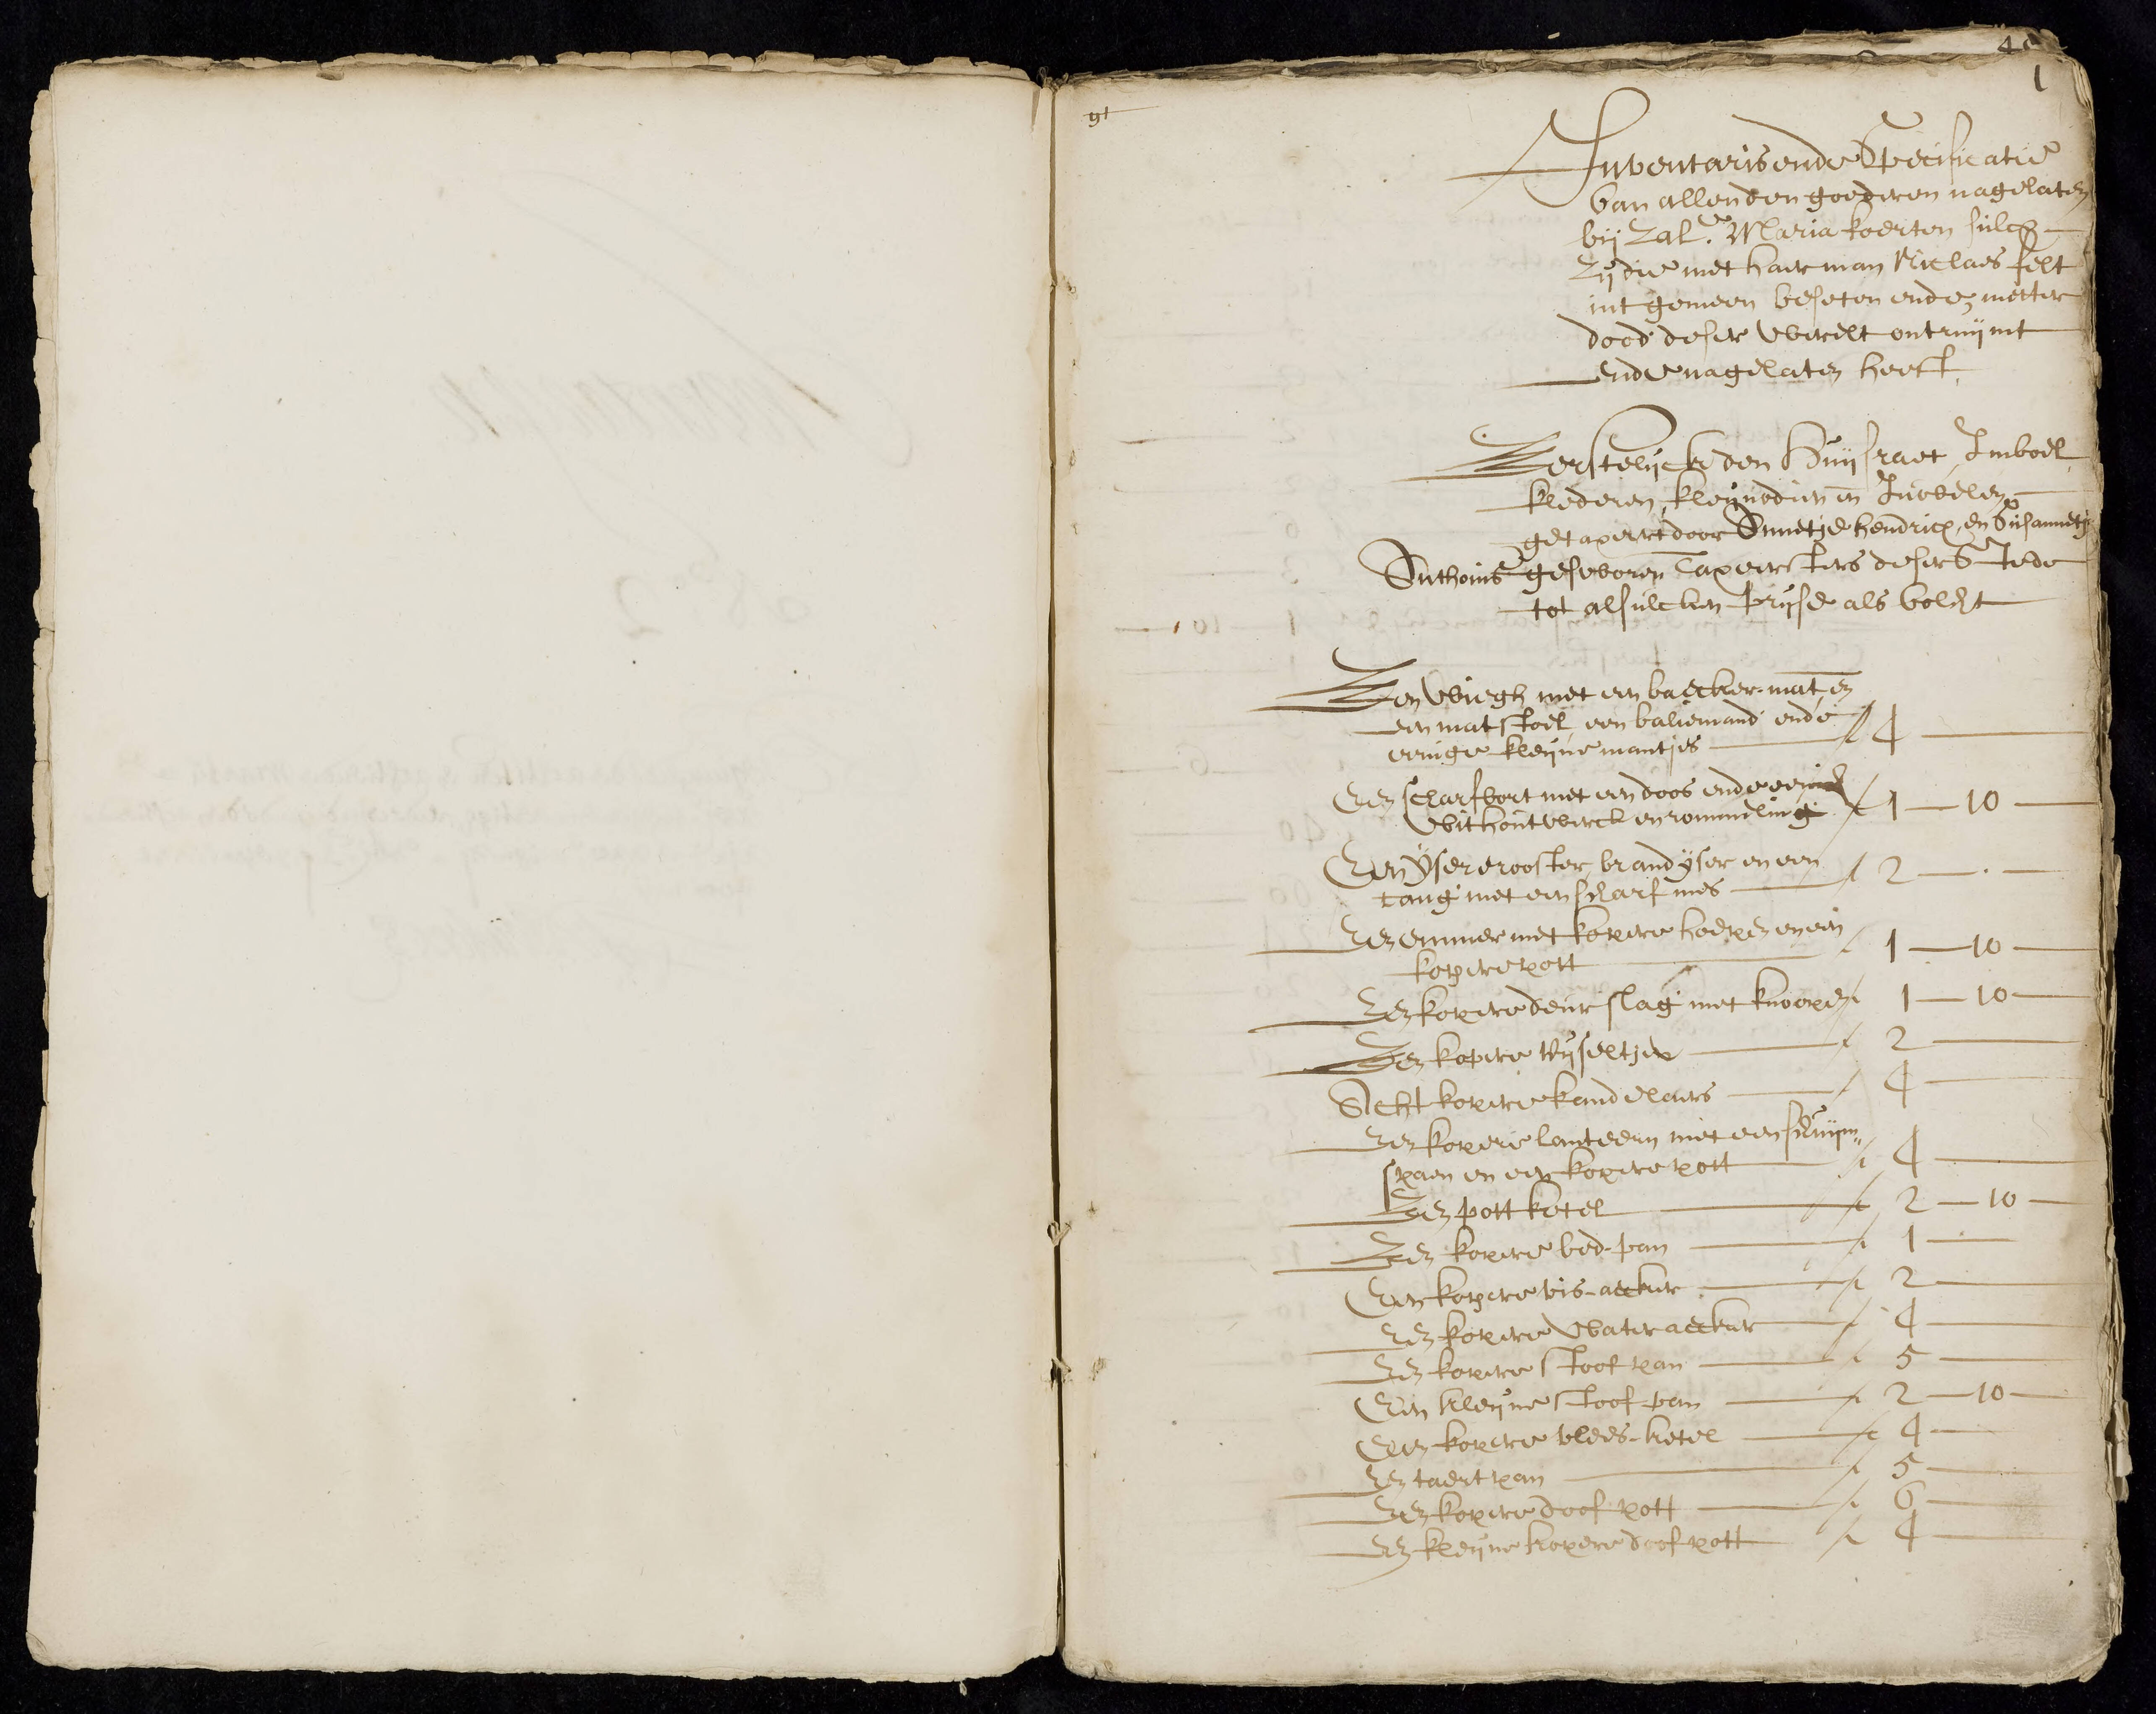 1
Inventaris ende Specificatie
van allen den goederen nagelaten
bij Zal.r Maria koerten sulcx
zij die met haer man Niclaes felt
int gemeen beseten ende metter
dood deser Werelt ontruijmt
ende nagelaten heeft
Eerstelijck den Huijsraet Imboel
klederen, kleijnodien en Juwelen
getaxeert door Annetje hendricx, en Susannetje
Anthonis geswoeren taxeersters deser Stede
tot alsulcken prijse als volcht
Een Wiegh met een baecker-mat en
een mat stoel een baliemand ende
eenige kleijne mantjes 4
Een scharfbort met een doos ende eenich
Wit hout werck en rommeling 1—10
Een Ysere rooster, brandyser en een
tang met een scharf mes 2—.—
Een emmer met kopere hoepen en een
kopere pott 1—10
Een kopere deurslag met knoopen 1—10
Een kopere Vijseltjen 2
Acht kopere kandelaers 4
Een kopere lanteern met een schuijm
spaen en een kopere pott 4
Een pott ketel 2—10
Een kopere bed-pan 1
Een kopere vis-aecker 2
Een kopere Water aecker 4
Een kopere stoof pan 5
Een kleijne stoof-pan 2—10
Een kopere vlees-ketel 4
Een taert pan 5
Een kopere doof pott 6
Een kleijne kopere doof pott 4